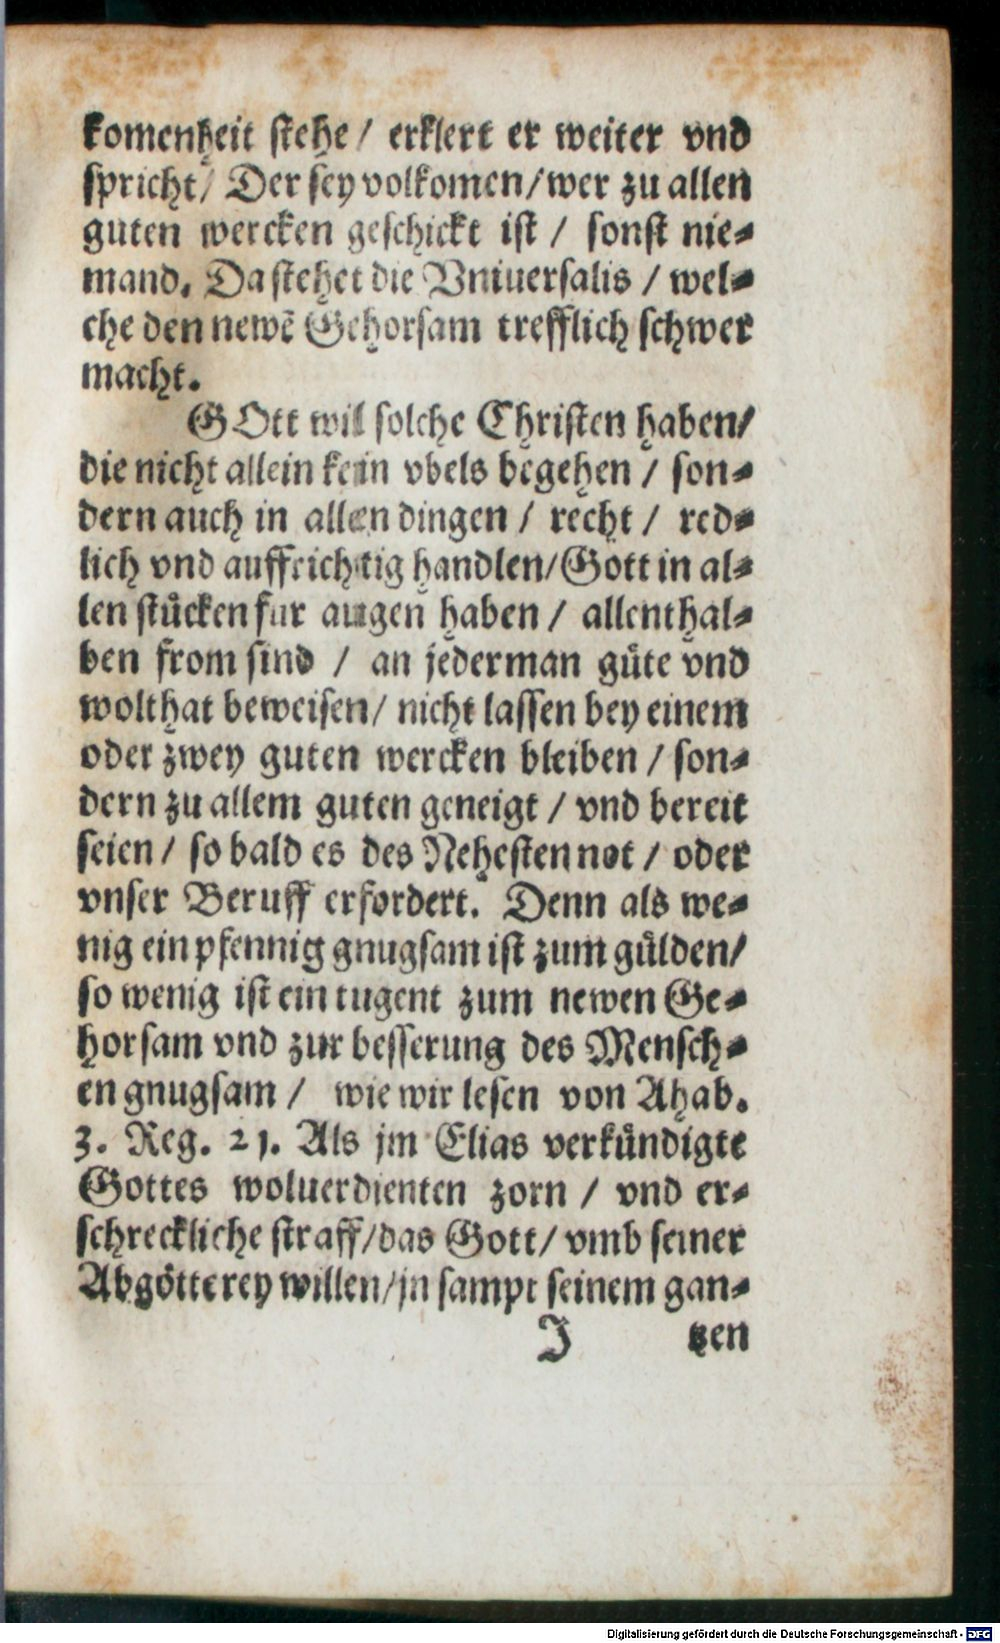 komenheit stehe / erklert er weiter vnd
spricht / Der sey volkomen / wer zu allen
guten wercken geschickt ist / sonst nie-
mand. Da stehet die Vniuersalis / wel-
che den newẽ Gehorsam trefflich schwer
macht.
GOtt wil solche Christen haben /
die nicht allein kein vbels begehen / son-
dern auch in allen dingen / recht / red-
lich vnd auffrichtig handlen / Gott in al-
len stücken fur augen haben / allenthal-
ben from sind / an jederman güte vnd
wolthat beweisen / nicht lassen bey einem
oder zwey guten wercken bleiben / son-
dern zu allem guten geneigt / vnd bereit
seien / so bald es des Nehesten not / oder
vnser Beruff erfordert. Denn als we-
nig ein pfennig gnugsam ist zum gülden /
so wenig ist ein tugent zum newen Ge-
horsam vnd zur besserung des Mensch-
en gnugsam / wie wir lesen von Ahab.
3. Reg. 21. Als jm Elias verkündigte
Gottes woluerdienten zorn / vnd er-
schreckliche straff / das Gott / vmb seiner
Abgötterey willen / jn sampt seinem gan-
J tzen
Digitalisierung gefördert durch die Deutsche Forschungsgemeinschaft - DFG